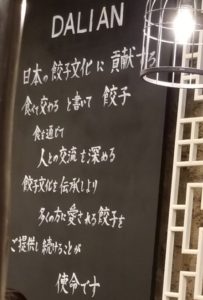 DALIAN
日本の餃子文化に貢献する
食べて交わると書いて 餃子
食を通じて
人との交流を深める
餃子文化を伝承しより
多くの方に愛される餃子を
ご提供し続けることが
使命です